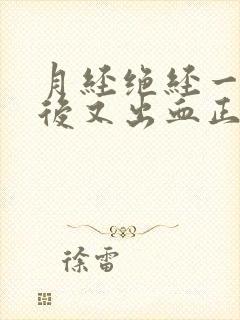 月经绝经一
後又出血正
徐雷